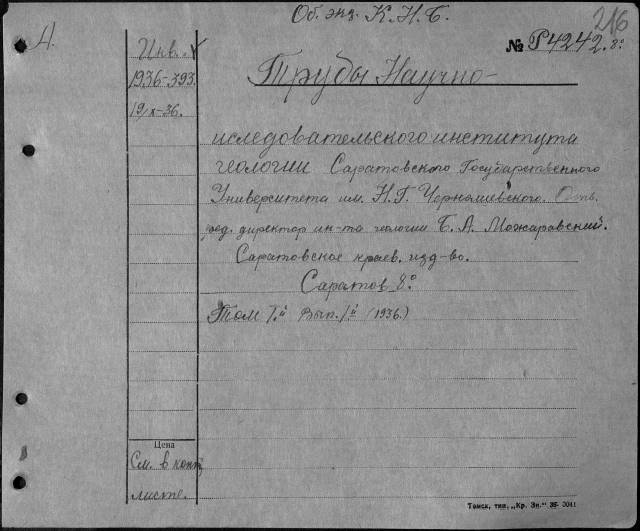 Об. экз. К.Н.Б.
216
4.
Инв. №
№ Р4242. 8°
1936-393.
Труды Научно-
19/X-36.
иследовательского института
геологии Саратовского Государственного
Университета им. Н.Г. Чернышевского. Отв.
ред. директор ин-та геологии Б. А. Можаровский.
Саратовское краев. изд-во.
Саратов 8°
Том I.й Вып. I й (1936.)
Цена
См. в конт.
листе.
Томск, тип. „Кр. Зн." 36 3041